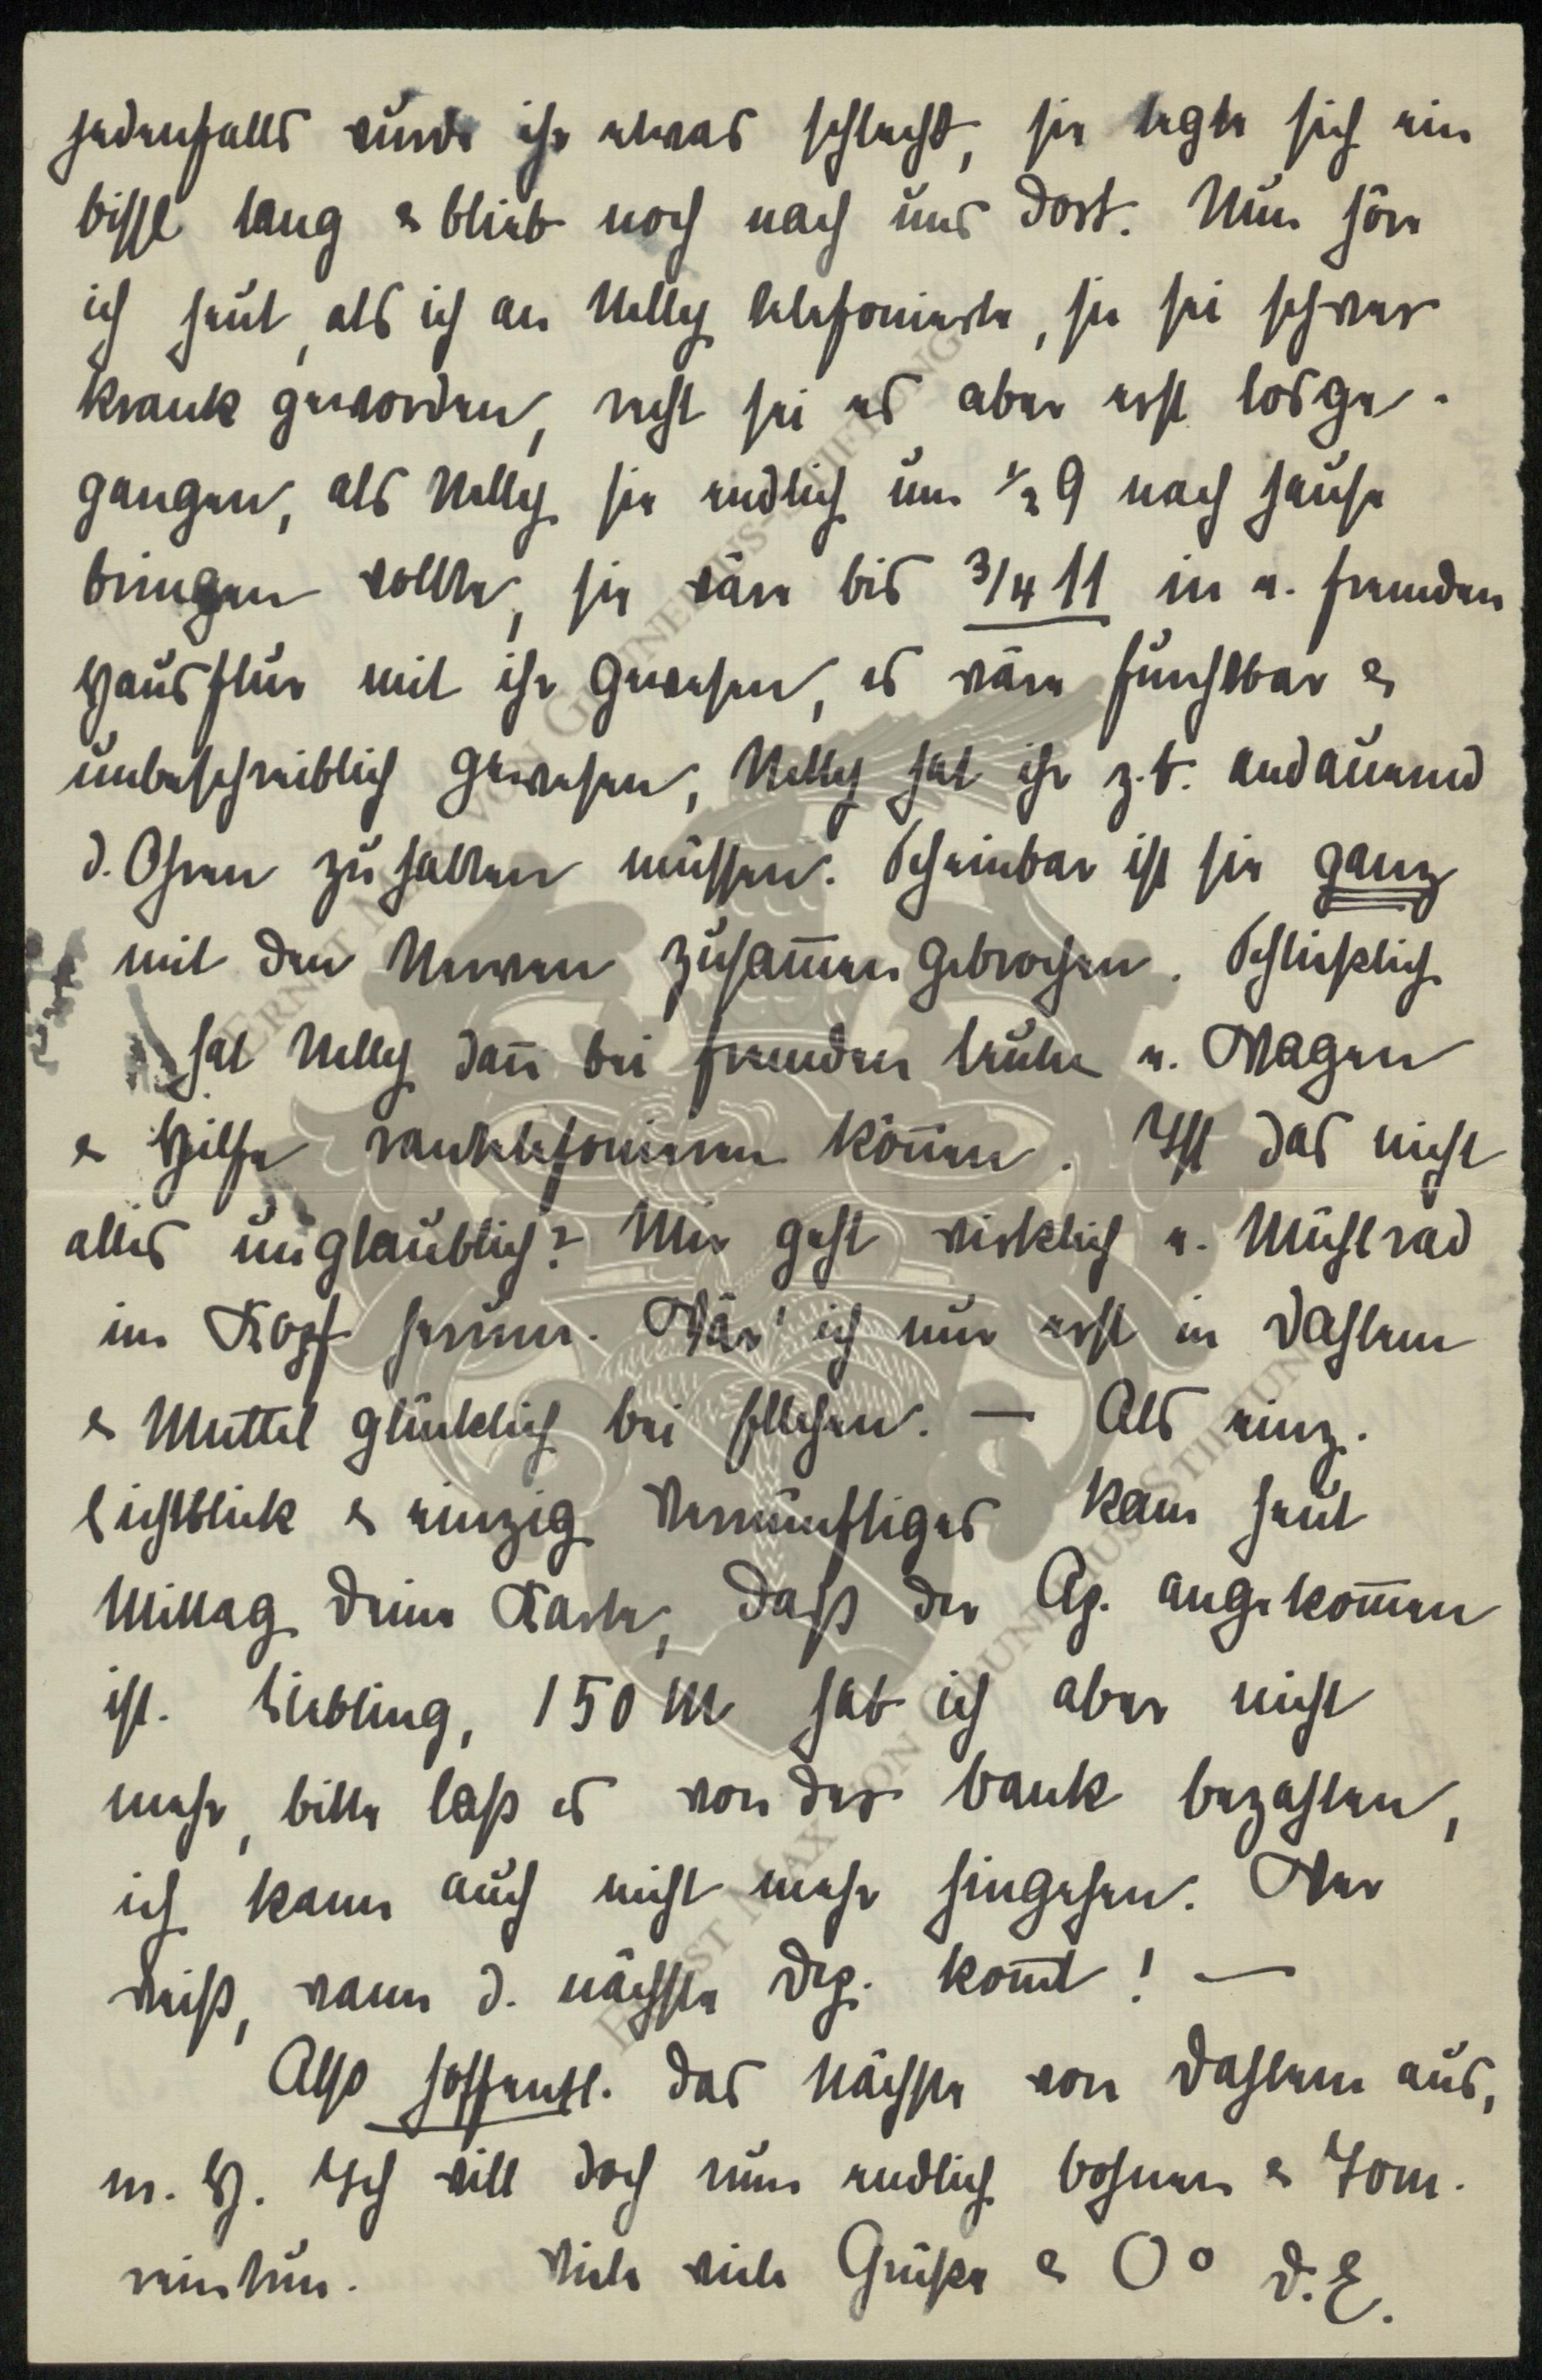 jedenfalls wurde ihr etwas schlecht, sie legte sich ein
bissl lang & blieb noch nach uns dort. Nun höre
ich heut, als ich an Nelly telefonierte, sie sei schwer
krank geworden, recht sei es aber erst losge-
gangen, als Nelly sie endlich um ½ 9 nach Hause
bringen wollte, sie wäre bis 3/4 11 in e. fremden
Hausflur mit ihr gewesen, es wäre furchtbar &
unbeschreiblich gewesen, Nelly hat ihr z.T. andauernd
d. Ohren zuhalten müssen. Scheinbar ist sie ganz
mit den Nerven zusam̅engebrochen. Schließlich
hat Nelly dan̅ bei fremden Leuten e. Wagen
& Hilfe rantelefonieren kön̅en. Ist das nicht
alles unglaublich? Mir geht wirklich e. Mühlrad
im Kopf herum. Wär' ich nur erst in Dahlem
& Muttel glücklich bei Ellchen. — Als einz.
Lichtblick & einzig Vernünftiges kam heut
Mittag Deine Karte, daß der Ap. angekom̅en
ist. Liebling, 150 M hab ich aber nicht
mehr, bitte laß es von der Bank bezahlen,
ich kann auch nicht mehr hingehen. Wer
weiß, wann d. nächste kom̅t! —
Also hoffentl. das Nächste von Dahlem aus,
m. H. Ich will doch nun endlich Bohnen & Tom.
eintun. Viele viele Grüße & O° D. E.
ERNST MAX VON GRUNELIUS-STIFTUNG
ERNST MAX VON GRUNELIUS-STIFTUNG